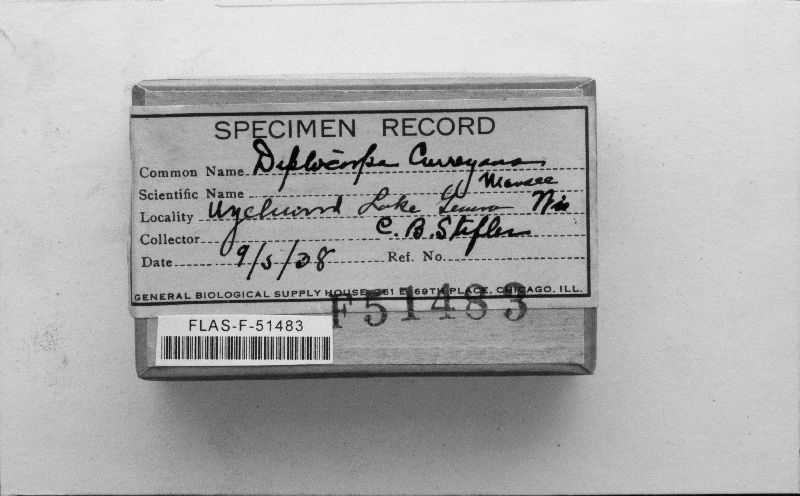 SPECIMEN RECORD
Common Name Diplocarpa Curreyana
Scientific Name Massee
Locality Wychwood Lake Geneva Wis
Collector C. B. Stifler
Date 9/5/38 Ref. No.
GENERAL BIOLOGICAL SUPPLY HOUSE, 761 E. 69TH PLACE, CHICAGO, ILL.
F51483
FLAS-F-51483